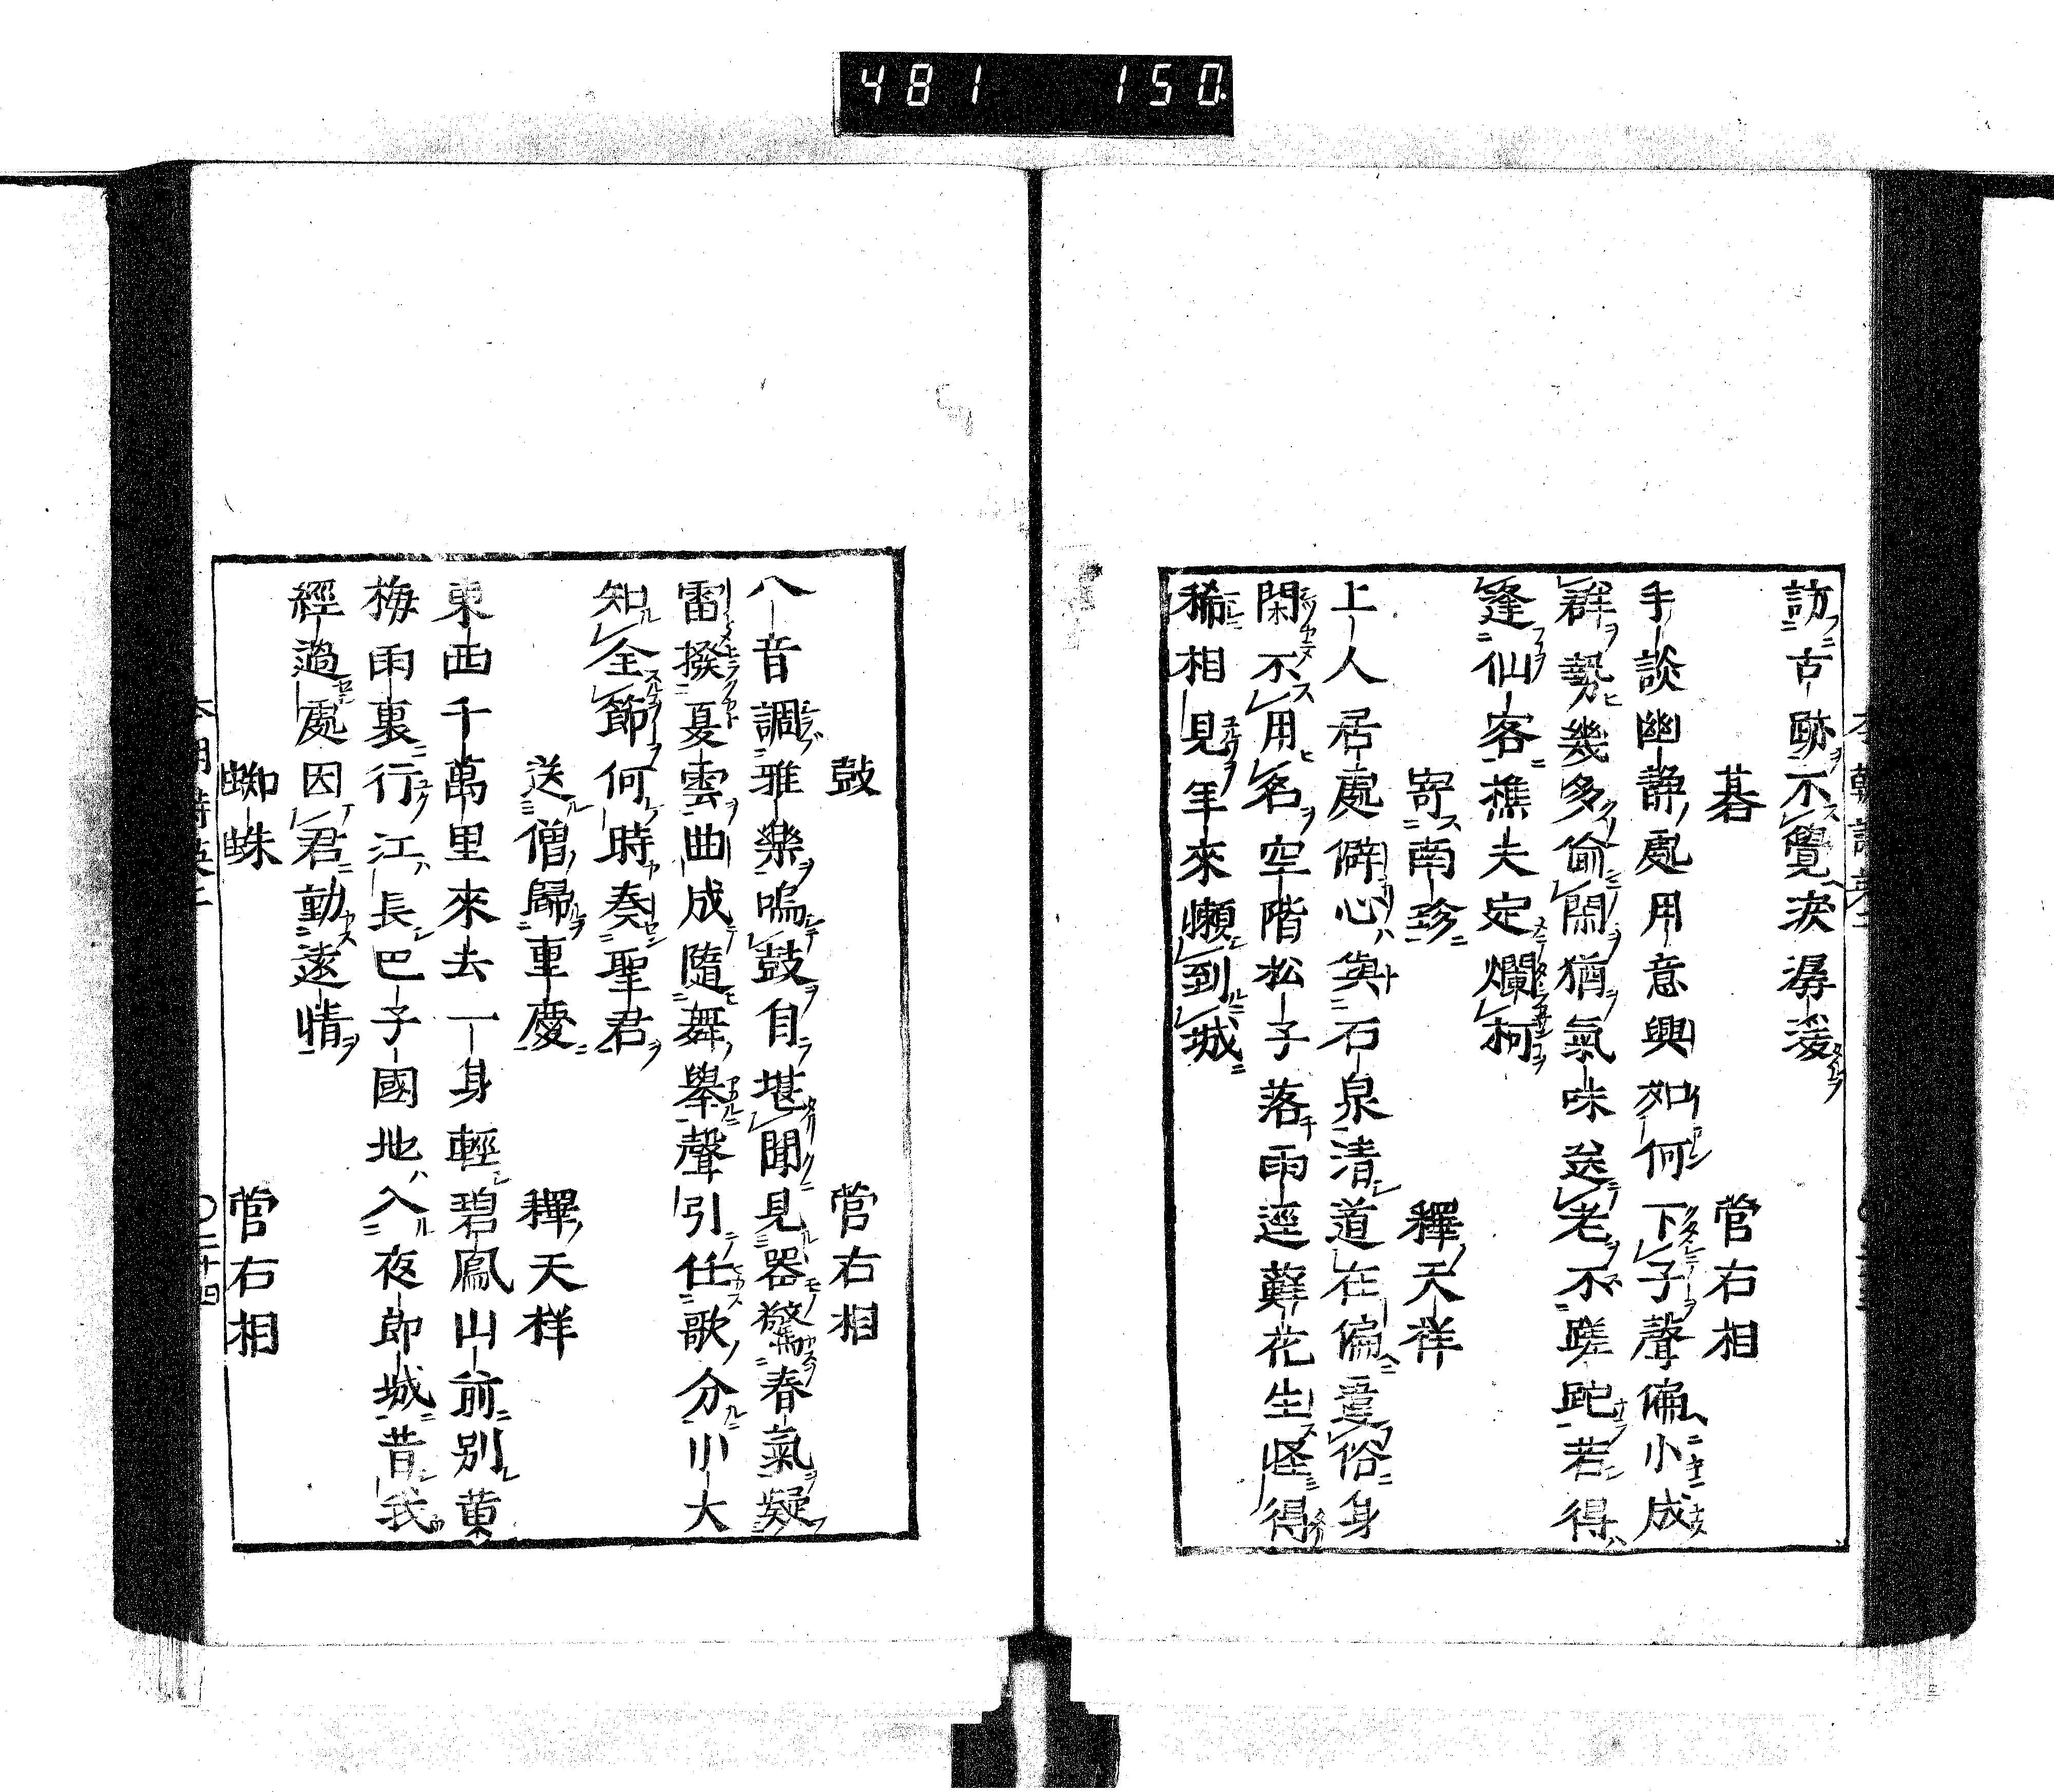 481 150
訪古跡不覺淚潺湲
碁 菅右相
手談幽靜處用意興如何下子聲偏小成
群勢幾多偷閑猶氣味送老不蹉跎若得
逢仙客樵夫定爛柯
寄南珍 釋天祥
上人居處僻心與石泉清道在偏違俗身
閑不用名空階松子落雨逕蘚花生怪得
稀相見年來懶到城
鼓 菅右相
八音調雅樂鳴鼓自堪聞見器驚春氣凝
雷撥夏雲曲成隨舞舉聲引任歌分小大
知全節何時奏聖君
送僧歸重慶 釋天祥
東西千萬里來去一身輕碧鳳山前別黄
梅雨裏行江長巴子國地入夜郎城昔我
經過處因君動遠情
蜘蛛 菅右相
二十四